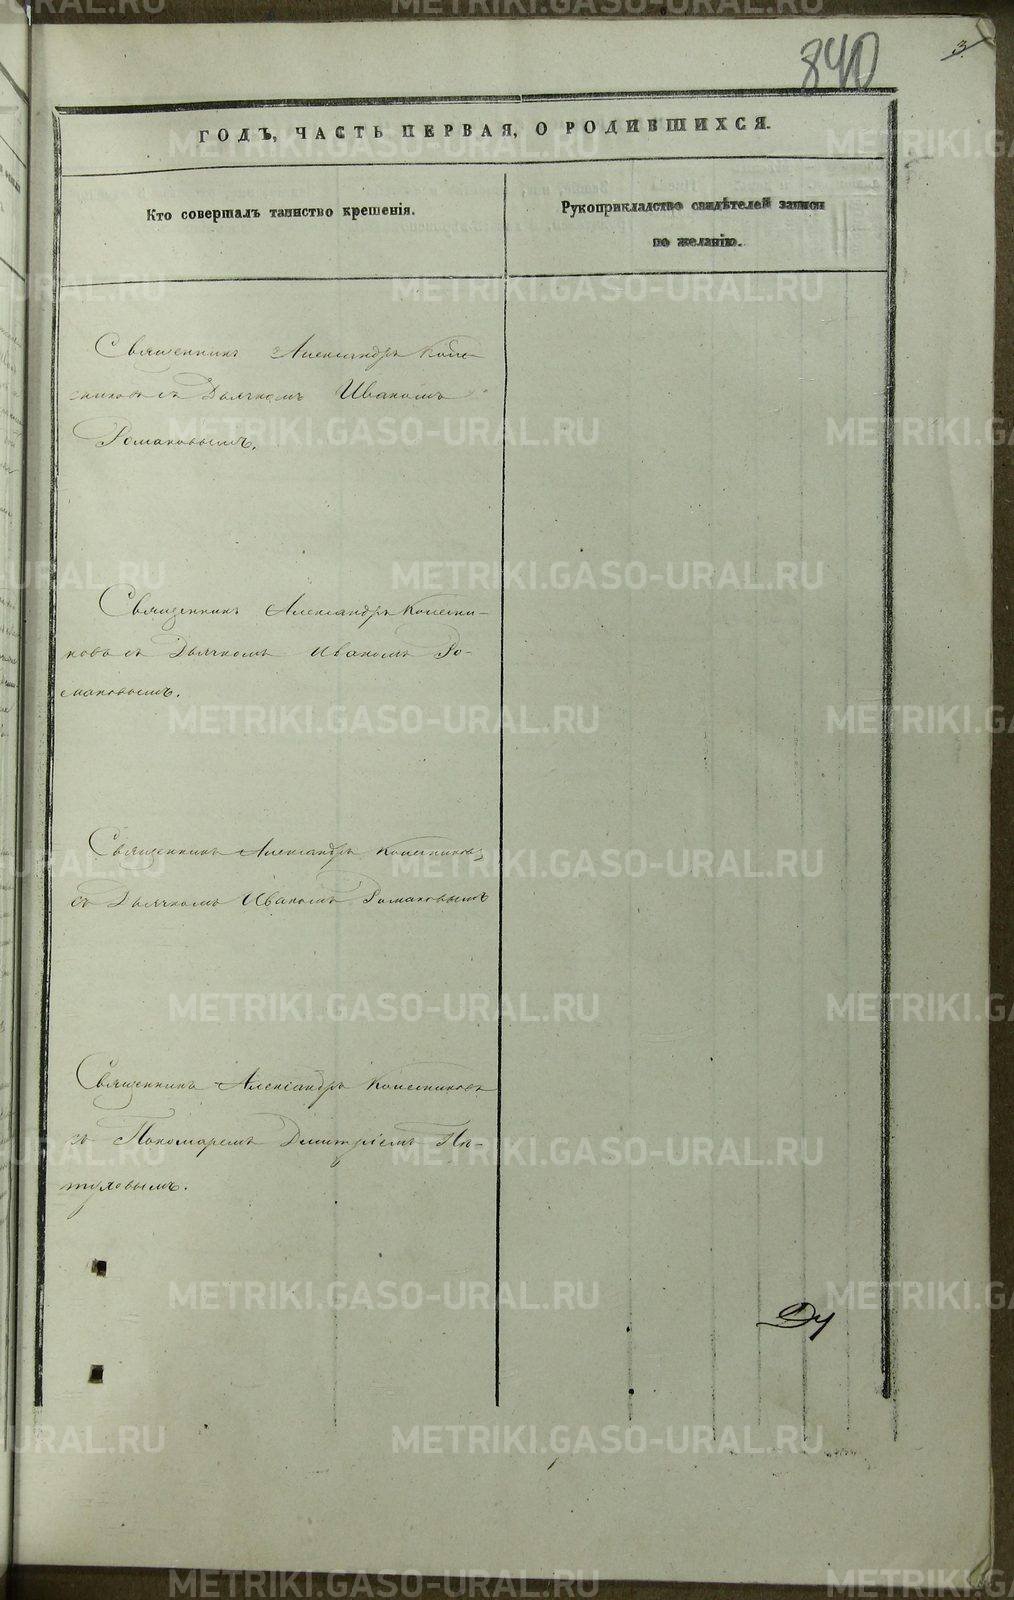 840
3.
ГОДЪ, ЧАСТЬ ПЕРВАЯ, О РОДИВШИХСЯ.
Кто совершалъ таинство крещенія.
Рукоприкладство свидѣтелей записи
по желанію.
Священникъ Александръ Колес-
никовъ съ Дьячкомъ Иваномъ
Романовымъ.
Священникъ Александръ Колесни-
ковъ съ Дьячкомъ Иваномъ Ро-
мановымъ.
Священникъ Александръ Колесниковъ
съ Дьячкомъ Иваномъ Романовымъ
Священникъ Александръ Колесниковъ
съ Пономаремъ Димитріемъ Пѣ-
туховымъ.
METRIKI.GASO-URAL.RU